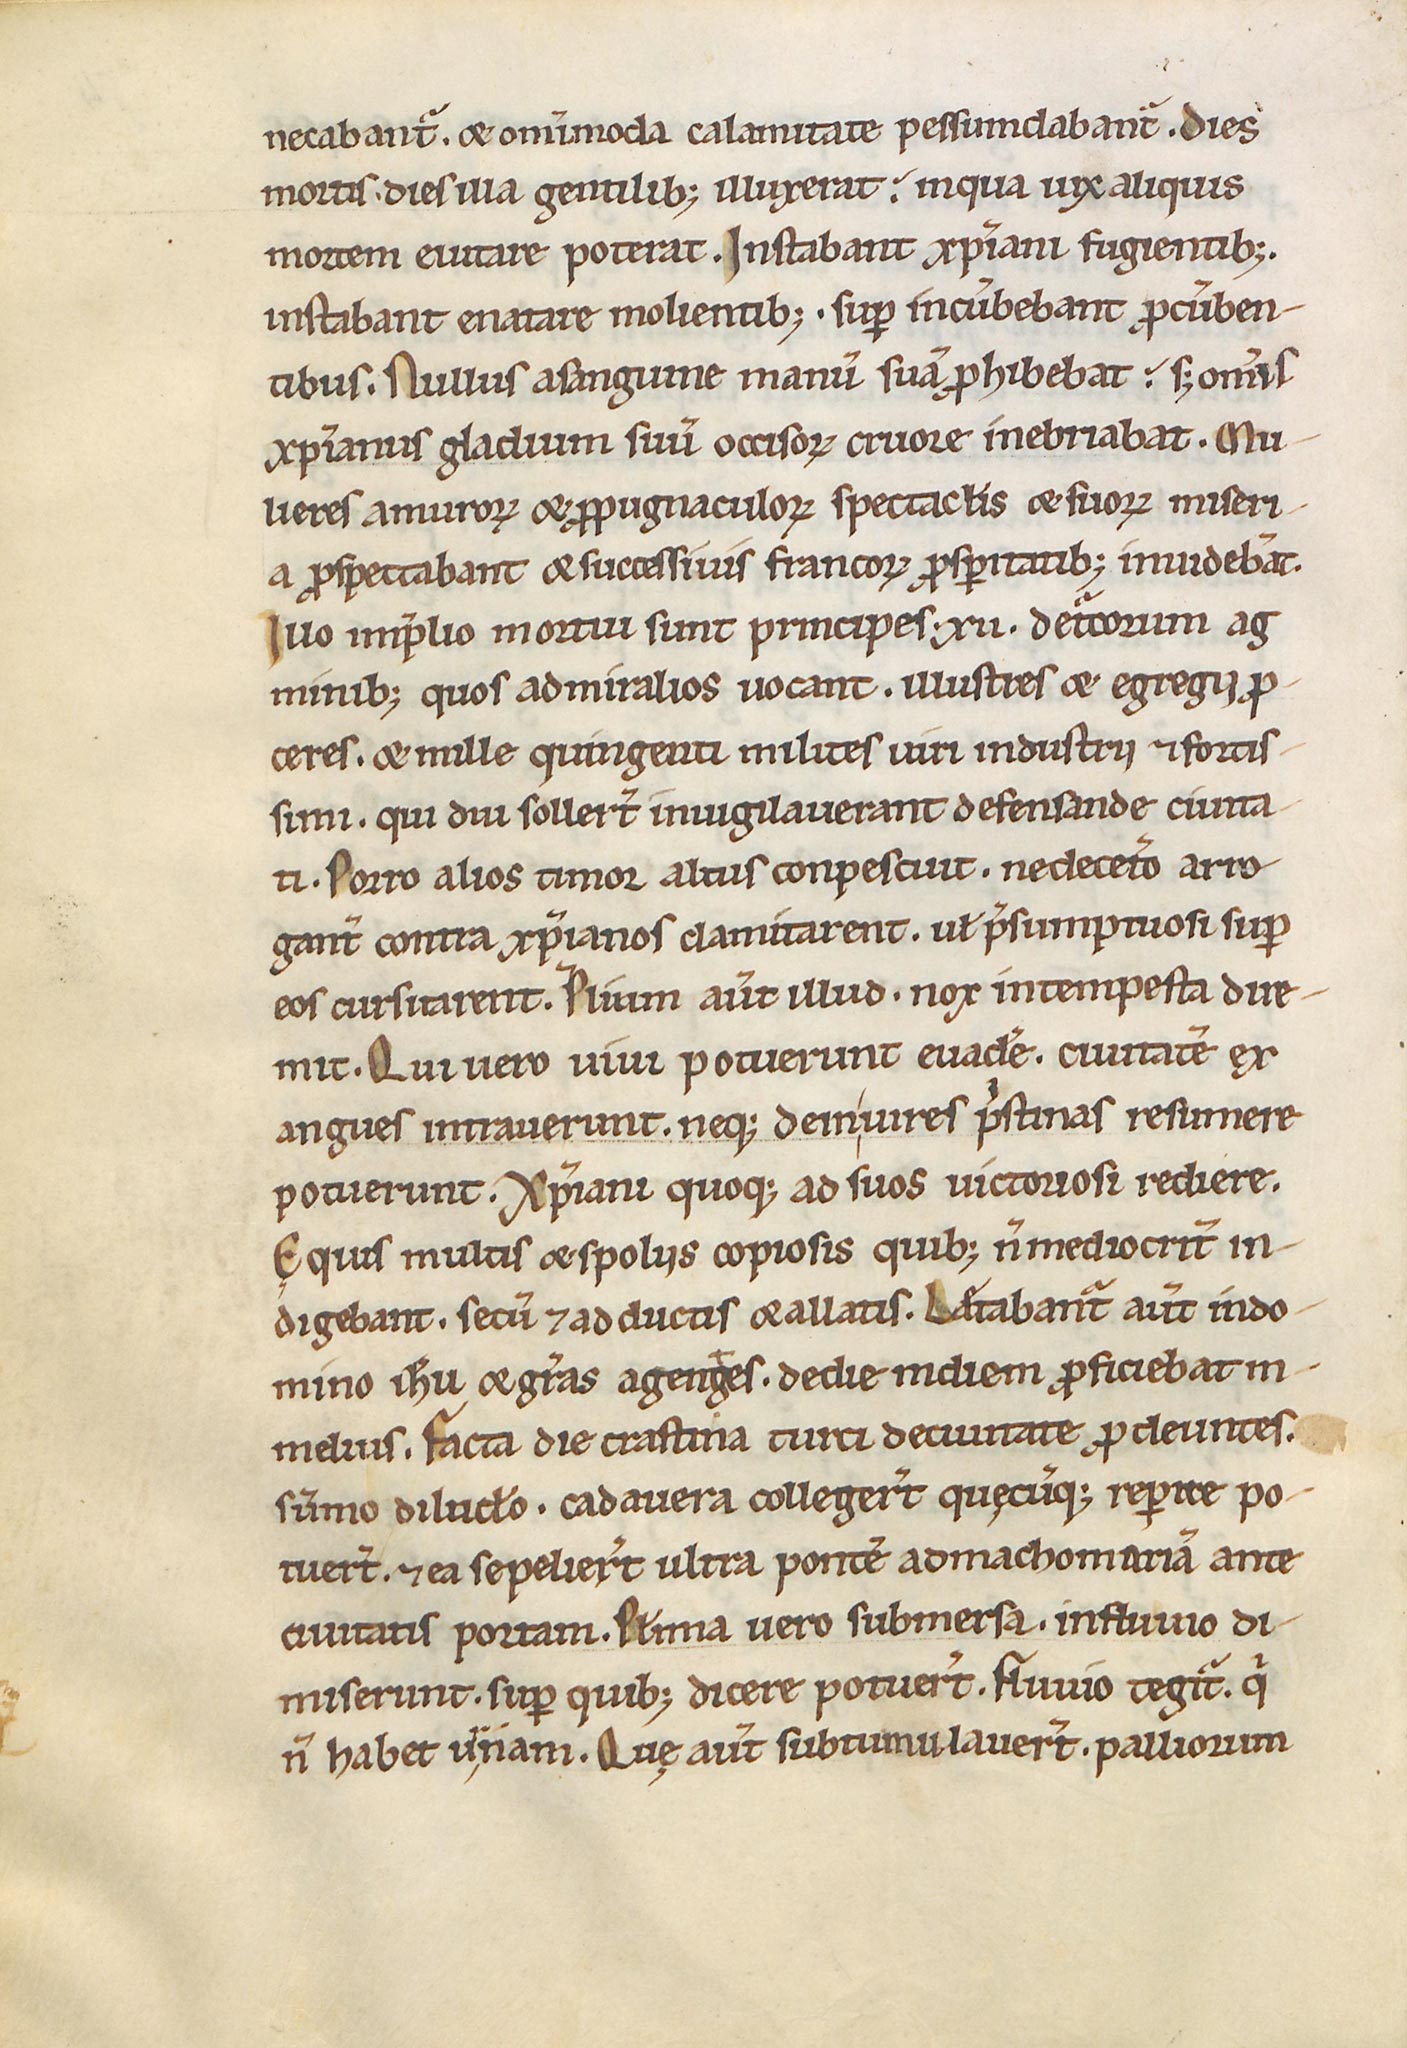 necabant᷑. & om̅imoda calamitate pessundabant᷑. Dies
mortis. dies illa gentilib; illuxerat: inqua uix aliquis
mortem euitare poterat. Instabant xp̅iani fugientib;.
instabant enatare molientib;. sup̱ incūbebant ꝓcūben-
tibus. Nullus asanguine manū suā ꝓhibebat: s; om̅is
xp̅ianus gladium suū occisoꝝ cruore inebriabat. Mu-
lieres amuroꝝ & ꝓpugnaculoꝝ spectac̅lis & suoꝝ miseri-
a ꝓspectabant & successiuis francoꝝ ꝓsꝑitatib; inuidebāt.
Illo imp̅lio mortui sunt principes. xii. de t᷑corum ag
minib; quos admiralios uocant. illustres & egregij ꝓ-
ceres. & mille quingenti milites uiri industrij ⁊ fortis-
simi. qui diu sollert̅ inuigilauerant defensande ciuita-
ti. Porro alios timor altus conpescuit. nedecet̅o arro-
gant̅ contra xp̅ianos clamitarent. uł p̅sumptuosi suꝑ
eos cursitarent. P̅lium aut̅ illud. nox intempesta dire-
mit. Qui uero uiui potuerunt euade̅. ciuitate̅ ex
angues intrauerunt. neq; dein uires p̅stinas resumere
potuerunt. Xp̅iani quoq; ad suos uictoriosi rediere.
Equis multis & spolijs copiosis quib; n̅ mediocrit̅ in-
digebant. secū ⁊ adductis & allatis. Lætabant᷑ aut̅ indo-
mino ih̅u & gr̅as agentes. dedie indiem ꝓficiebat in-
melius. Facta die crastina turci deciuitate ꝓdeuntes.
sūmo diluc̅lo. cadauera colleger̅t quęcūq; reꝑire po-
tuer̅t. ⁊ ea sepelier̅t ultra ponte̅ admachomariā ante
ciuitatis portam. Pl̅ima uero submersa. influuio di-
miserunt. suꝑ quib; dicere potuer̅t. Fluuio tegit᷑. q̅
n̅ habet urnam. Quę aut̅ subtumulauer̅t. palliorum